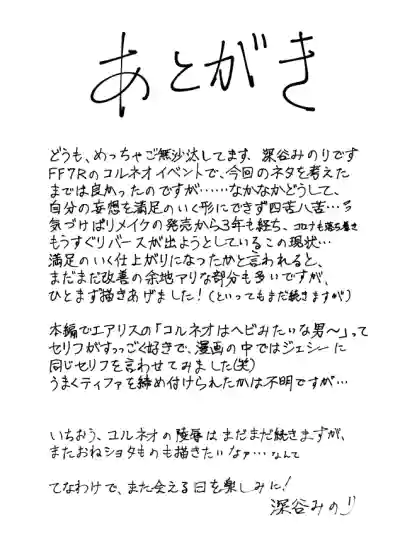 あとがき
どうも、めっちゃご無沙汰してます、深谷みのりです
FF7Rのコルネオイベントで、今回のネタを考えた
までは良かったのですが……なかなかどうして、
自分の妄想を満足のいく形にできず四苦八苦…
気づけばリメイクの発売から3年も経ち、コロナも落ち着き
もうすぐリバースが出ようとしているこの現状…
満足のいく仕上がりになったかと言われると、
まだまだ改善の余地アリな部分も多いですが、
ひとまず描きあげました!(といってもまだ続きますが)
本編でエアリスの「コルネオはヘビみたいな男〜」って
セリフがすっごく好きで、漫画の中ではジェシーに
同じセリフを言わせてみました(笑)
うまくティファを締め付けられたかは不明ですが…
いちおう、コルネオの陵辱はまだまだ続きますが、
またおねショタものも描きたいなァ…なんて
てなわけで、また会える日を楽しみに!
深谷みのり